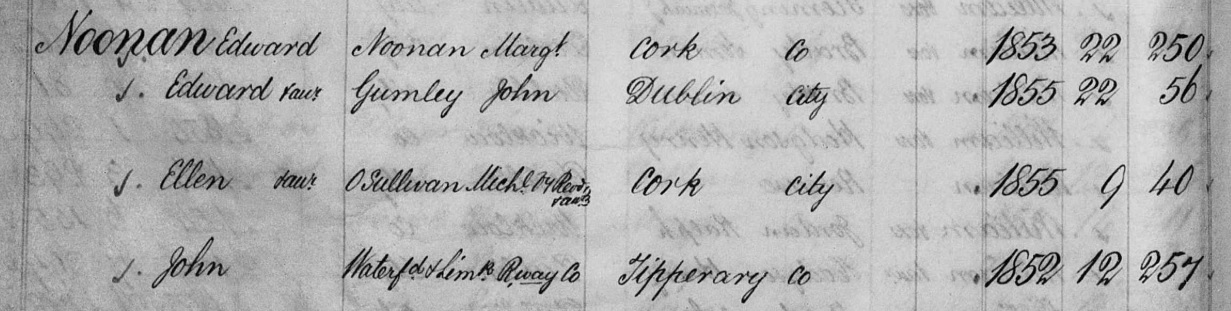 Noonan Edward Noonan Margt Cork Co 1853 22 250
s. Edward &anr Gumley John Dublin City 1855 22 56
s. Ellen &anr OSullivan Michl Cork City 1855 9 40
s. John Waterfd & Limk Rway Co Tipperary Co 1852 12 257